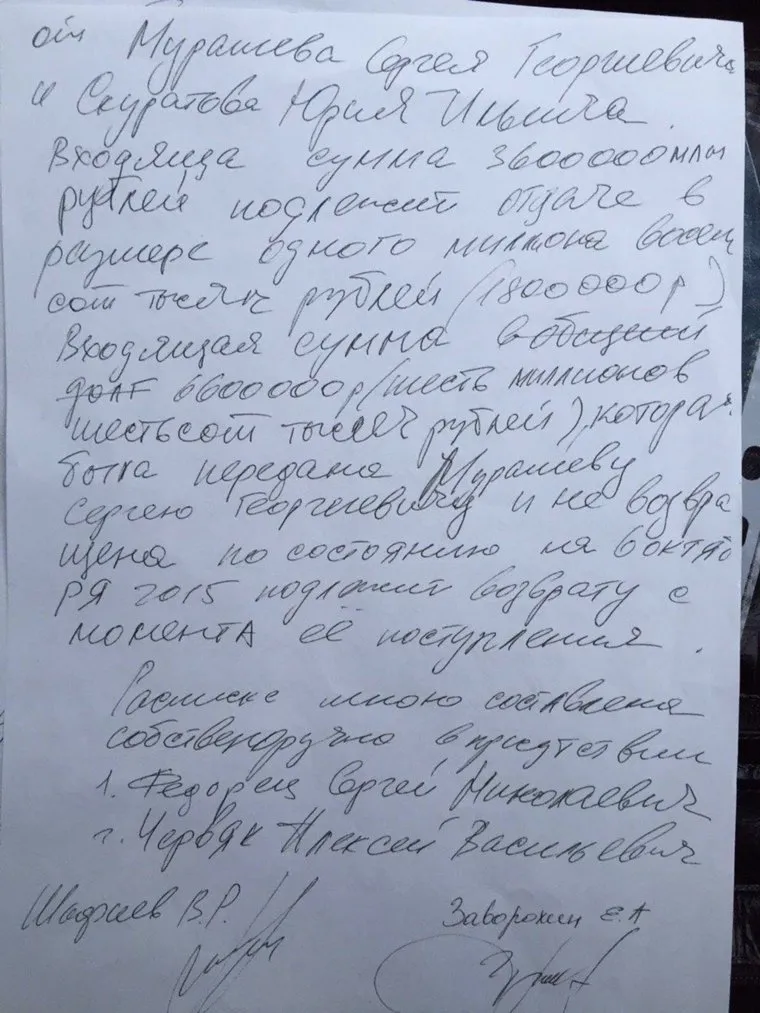 от Мурашева Сергея Георгиевича
и Скуратова Юрия Ильича.
Входяща сумма 3600000млн
рублей подлежит отдаче в
размере одного миллиона восем
сот тысяч рублей (1800000р)
Входящая сумма в общий
долг 6600000р(шесть миллионов
шестьсот тысяч рублей), которая
была передана Мурашеву
Сергею Георгиевичу и не возвра
щена по состоянию на 6 октяб
ря 2015 подлежит возврату с
момента её поступления.
Расписка мною составлена
собственоручно в присутствии
1. Федорец Сергей Николаевич
2. Червяк Алексей Васильевич
В.Р.
Заворожин Е.А